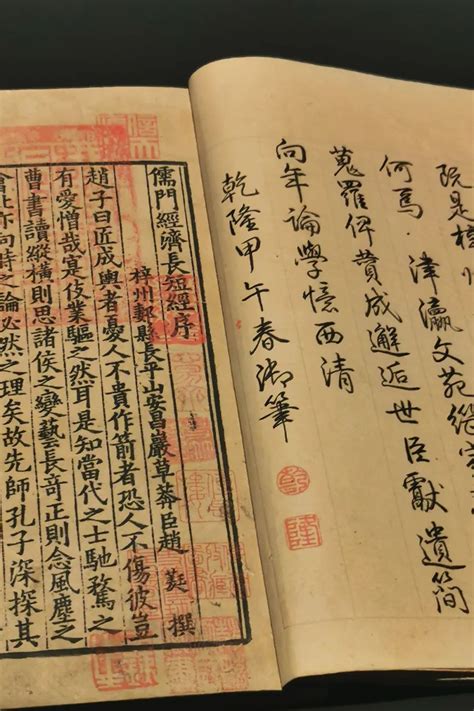 是梓
何焉津瀛文苑
蒐羅俾費成邂逅世臣獻遺簡
向年論學憶西清
乾隆甲午春御筆
乾
隆
儒門經濟長短經序
梓州郪縣長平山安昌巖草莽臣趙蕤撰
趙子曰匠成輿者憂人不貴作箭者恐人不傷彼豈
有愛憎哉寔伎業驅之然耳是知當代之士馳騖之
曹書讀縱橫則思諸侯之變藝長奇正則念風塵之
會此亦向時之論必然之理矣故先師孔子深探其